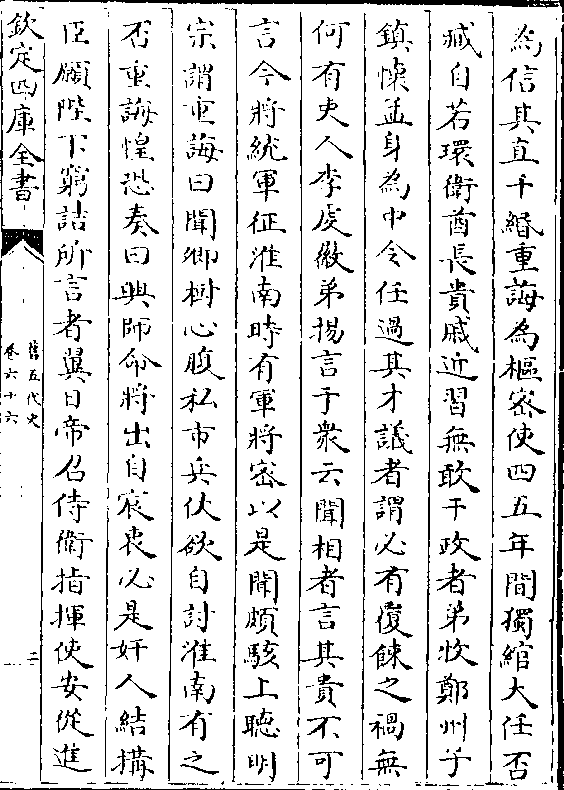 為信其直千緡重誨為樞密使四五年間獨綰大任否
臧自若環衛酋長貴戚近習無敢干政者弟牧鄭州子
鎮懷孟身為中令任過其才議者謂必有覆餗之禍無
何有吏人李虔徽弟揚言于衆云聞相者言其貴不可
言今將統軍征淮南時有軍將密以是聞頗駭上聽明
宗謂重誨曰聞卿樹心腹私市兵仗欲自討淮南有之
否重誨惶恐奏曰興師命將出自宸衷必是奸人結搆
臣願陛下窮詰所言者翼日帝召侍衛指揮使安從進
欽定四庫全書
舊五代史
卷六十六
二